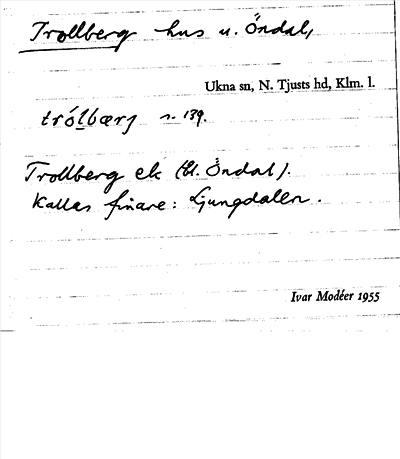 Trollberg hus u. Öndal,
Ukna sn, N. Tjusts hd, Klm. l.
trólbærj s. 139.
Trollberg ek (t.l. Öndal).
Kallas finare: Ljungdalen.
Ivar Modéer 1955